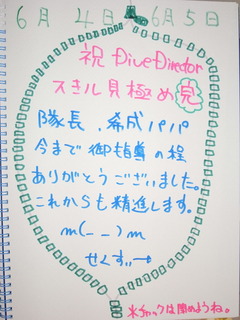 6月4日 6月5日
祝 DiveDirector
スキル見極め完
隊長、希成パパ
今まで御指導の程
ありがとうございました。
これからも精進します。
m(_ _)m
せくすぃー
※チャックは閉めようね。